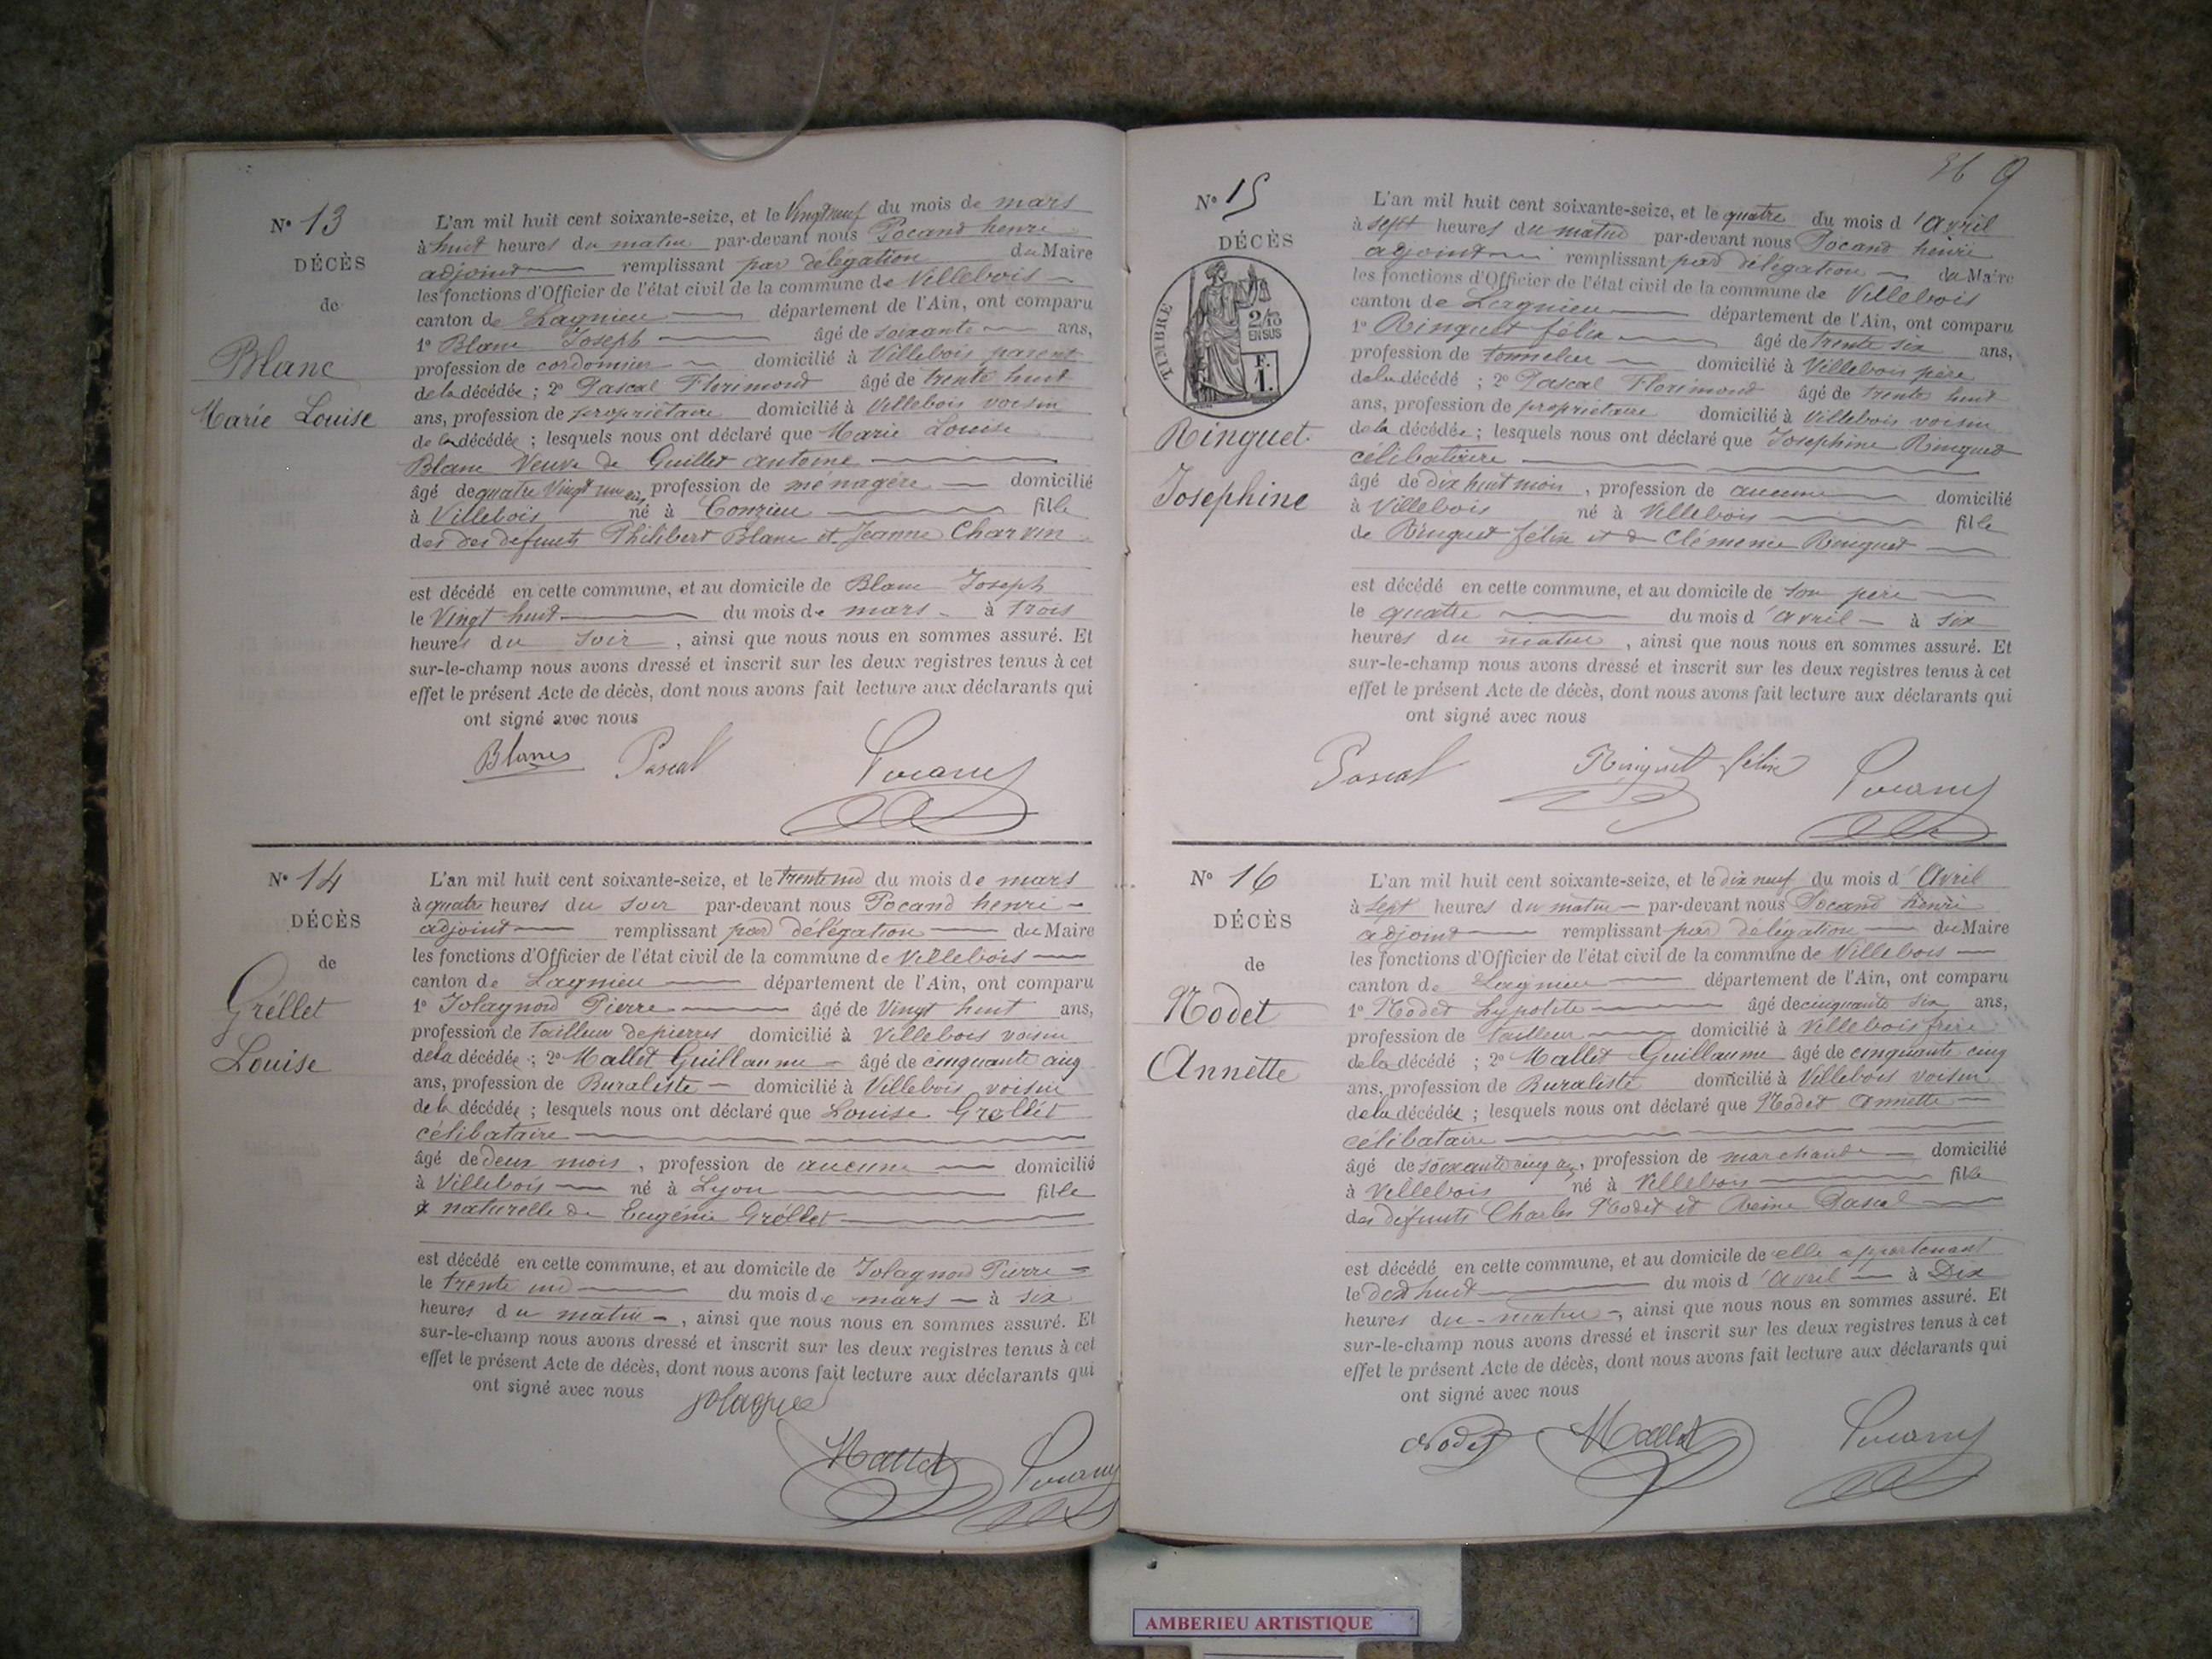 N° 13
DÉCÈS
de
Blanc
Marie Louise
L'an mil huit cent soixante-seize, et le Vingt neuf du mois de mars
à huit heures du matin par-devant nous Pocand henri
adjoint remplissant par délégation du Maire
les fonctions d'Officier de l'état civil de la commune de Villebois
canton de Lagnieu département de l'Ain, ont comparu
1° Blanc Joseph âgé de soixante ans,
profession de cordonnier domicilié à Villebois parent
de la décédée ; 2° Pascal Florimond âgé de trente huit
ans, profession de propriétaire domicilié à Villebois voisin
de la décédée ; lesquels nous ont déclaré que Marie Louise
Blanc Veuve de Guillet antoine
âgé de quatre Vingt un ans, profession de ménagère domicilié
à Villebois né à Conzieu fille
des des defunts Philibert Blanc et Jeanne Charvin
est décédé en cette commune, et au domicile de Blanc Joseph
le Vingt huit du mois de mars à trois
heures du soir, ainsi que nous nous en sommes assuré. Et
sur-le-champ nous avons dressé et inscrit sur les deux registres tenus à cet
effet le présent Acte de décès, dont nous avons fait lecture aux déclarants qui
ont signé avec nous
Blanc Pascal Pocand
N° 14
DÉCÈS
de
Gréllet
Louise
L'an mil huit cent soixante-seize, et le trente und du mois de mars
à quatre heures du soir par-devant nous Pocand henri
adjoint remplissant par délégation du Maire
les fonctions d'Officier de l'état civil de la commune de Villebois
canton de Lagnieu département de l'Ain, ont comparu
1° Jolagnod Pierre âgé de Vingt huit ans,
profession de tailleur de pierres domicilié à Villebois voisin
de la décédée ; 2° Mallet Guillaume âgé de cinquante cinq
ans, profession de Buraliste domicilié à Villebois voisin
de la décédée ; lesquels nous ont déclaré que Louise Grellét
célibataire
âgé de deux mois, profession de aucune domicilié
à Villebois né à Lyon fille
naturelle de Eugénie Gréllet
est décédé en cette commune, et au domicile de Jolagnod Pierre
le trente und du mois de mars à six
heures du matin, ainsi que nous nous en sommes assuré. Et
sur-le-champ nous avons dressé et inscrit sur les deux registres tenus à cet
effet le présent Acte de décès, dont nous avons fait lecture aux déclarants qui
ont signé avec nous
Mallet Pocand
36 9
N° 15
DÉCÈS
TIMBRE
2/10
EN SUS
F.
1.
Ringuet
Josephine
L'an mil huit cent soixante-seize, et le quatre du mois d'avril
à sept heures du matin par-devant nous Pocand henri
adjoint remplissant par délégation du Maire
les fonctions d'Officier de l'état civil de la commune de Villebois
canton de Lagnieu département de l'Ain, ont comparu
1° Ringuet félix âgé de trente six ans,
profession de tonnelier domicilié à Villebois père
de la décédé ; 2° Pascal Florimond âgé de trente huit
ans, profession de propriétaire domicilié à Villebois voisin
de la décédée ; lesquels nous ont déclaré que Josephine Ringuet
célibataire
âgé de dix huit mois, profession de aucune domicilié
à Villebois né à Villebois fille
de Ringuet félix et de Clémenie Ringuet
est décédé en cette commune, et au domicile de son père
le quatre du mois d'avril à six
heures du matin, ainsi que nous nous en sommes assuré. Et
sur-le-champ nous avons dressé et inscrit sur les deux registres tenus à cet
effet le présent Acte de décès, dont nous avons fait lecture aux déclarants qui
ont signé avec nous
Pascal Ringuet félix Pocand
N° 16
DÉCÈS
de
Nodet
Annette
L'an mil huit cent soixante-seize, et le dix neuf du mois d'Avril
à sept heures du matin par-devant nous Pocand henri
adjoint remplissant par délégation du Maire
les fonctions d'Officier de l'état civil de la commune de Villebois
canton de Lagnieu département de l'Ain, ont comparu
1° Nodet hypolite âgé de cinquante six ans,
profession de tailleur domicilié à Villebois frère
de la décédé ; 2° Mallet Guillaume âgé de cinquante cinq
ans, profession de Buraliste domicilié à Villebois voisin
de la décédée ; lesquels nous ont déclaré que Nodet annette
célibataire
âgé de soixante cinq ans, profession de marchande domicilié
à Villebois né à Villebois fille
des défunts Charles Nodet et Reine Pascal
est décédé en cette commune, et au domicile de elle appartenant
le dix huit du mois d'avril à Dix
heures du matin, ainsi que nous nous en sommes assuré. Et
sur-le-champ nous avons dressé et inscrit sur les deux registres tenus à cet
effet le présent Acte de décès, dont nous avons fait lecture aux déclarants qui
ont signé avec nous
Nodet Mallet Pocand
AMBERIEU ARTISTIQUE